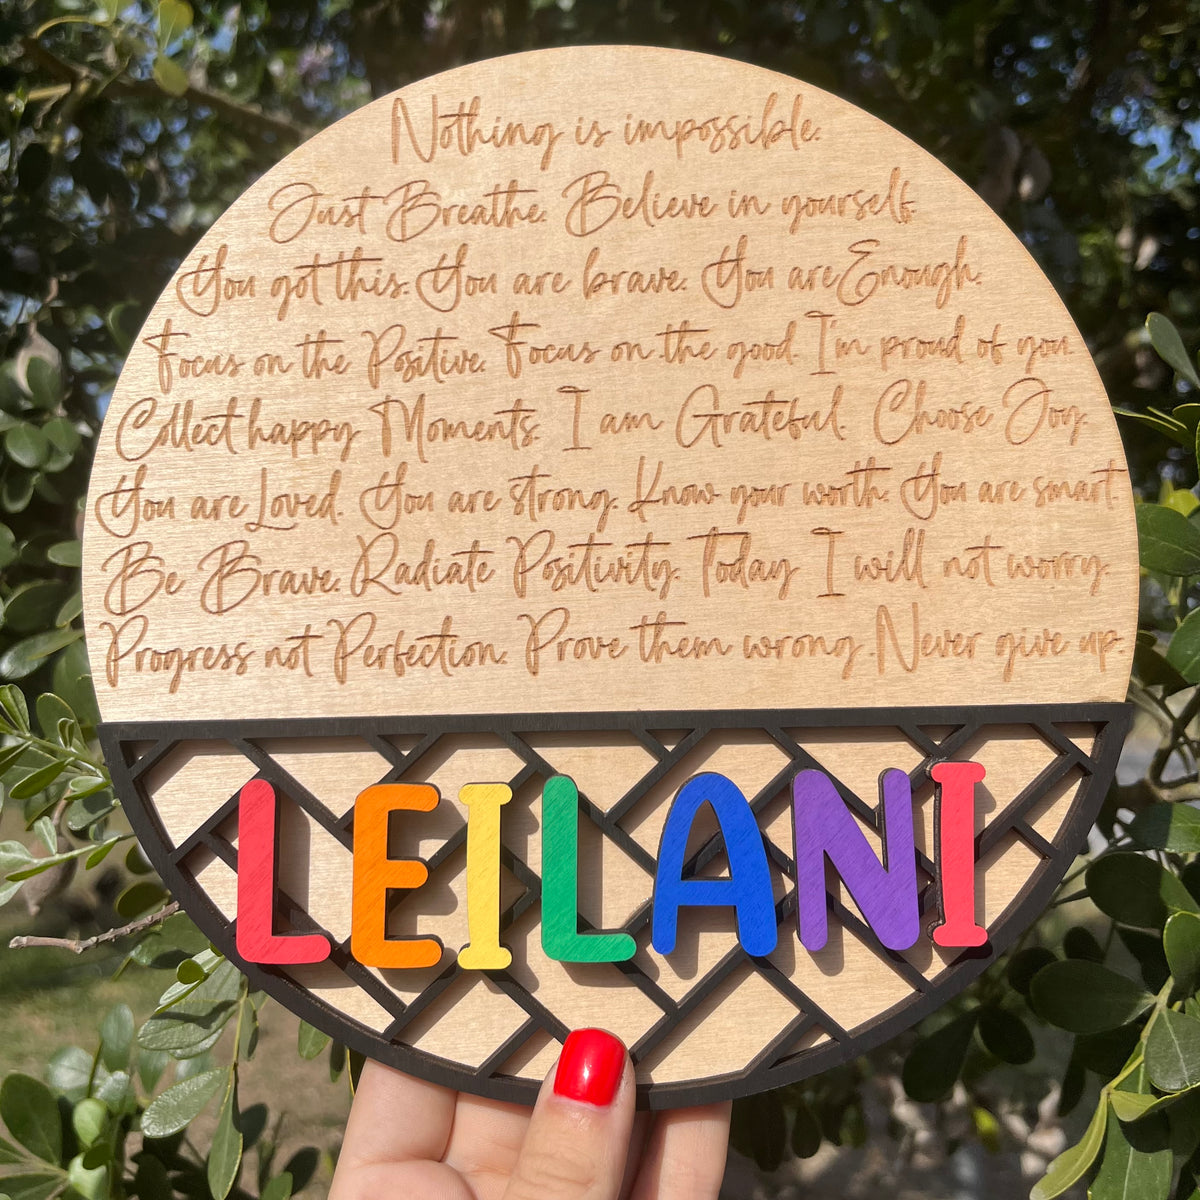 Nothing is impossible.
Just Breathe. Believe in yourself.
You got this. You are brave. You are Enough.
Focus on the Positive. Focus on the good. I'm proud of you.
Collect happy Moments. I am Grateful. Choose Joy.
You are Loved. You are strong. Know your worth. You are smart.
Be Brave. Radiate Positivity. Today I will not worry.
Progress not Perfection. Prove them wrong. Never give up.
LEILANI